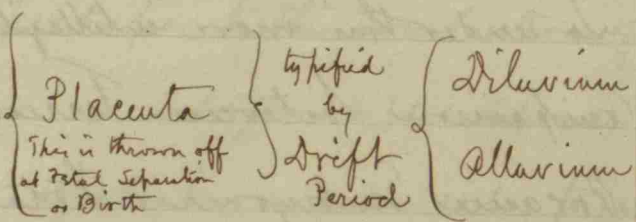 Placenta
This is thrown off
at Fœtal Separation
or Birth
typified
by
Drift
Period
Diluvium
Alluvium